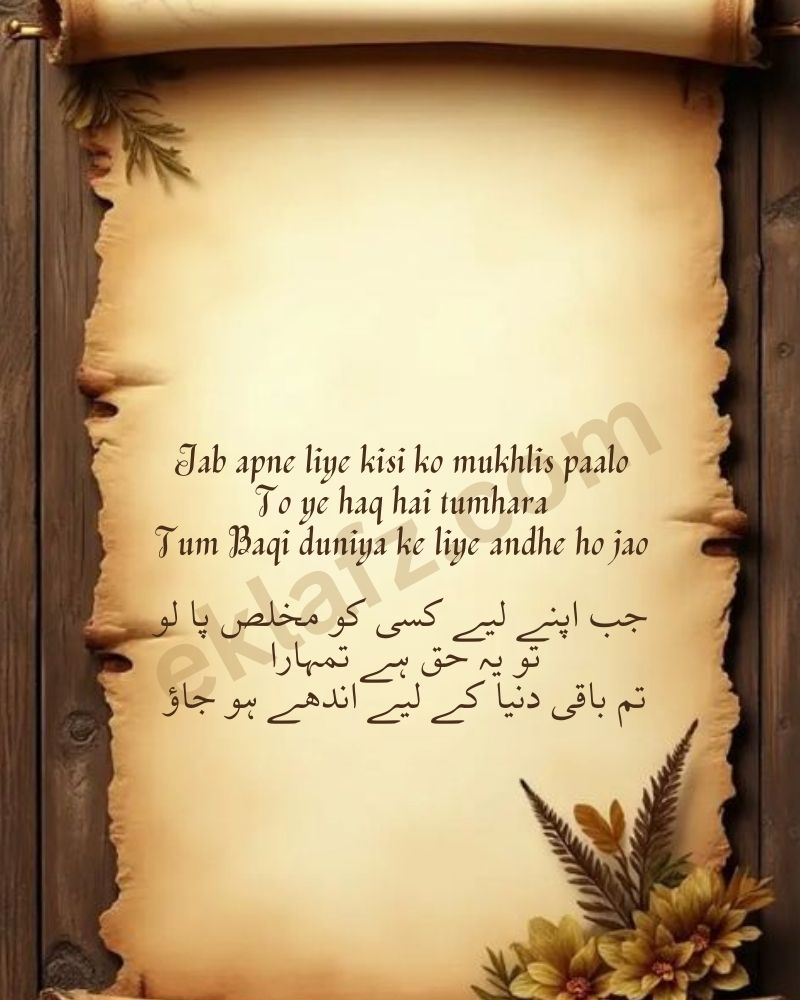 Jab apne liye kisi ko mukhlis paalo
To ye haq hai tumhara
Tum Baqi duniya ke liye andhe ho jao
جب اپنے لیے کسی کو مخلص پا لو
تو یہ حق ہے تمہارا
تم باقی دنیا کے لیے اندھے ہو جاؤ
eklafz.com